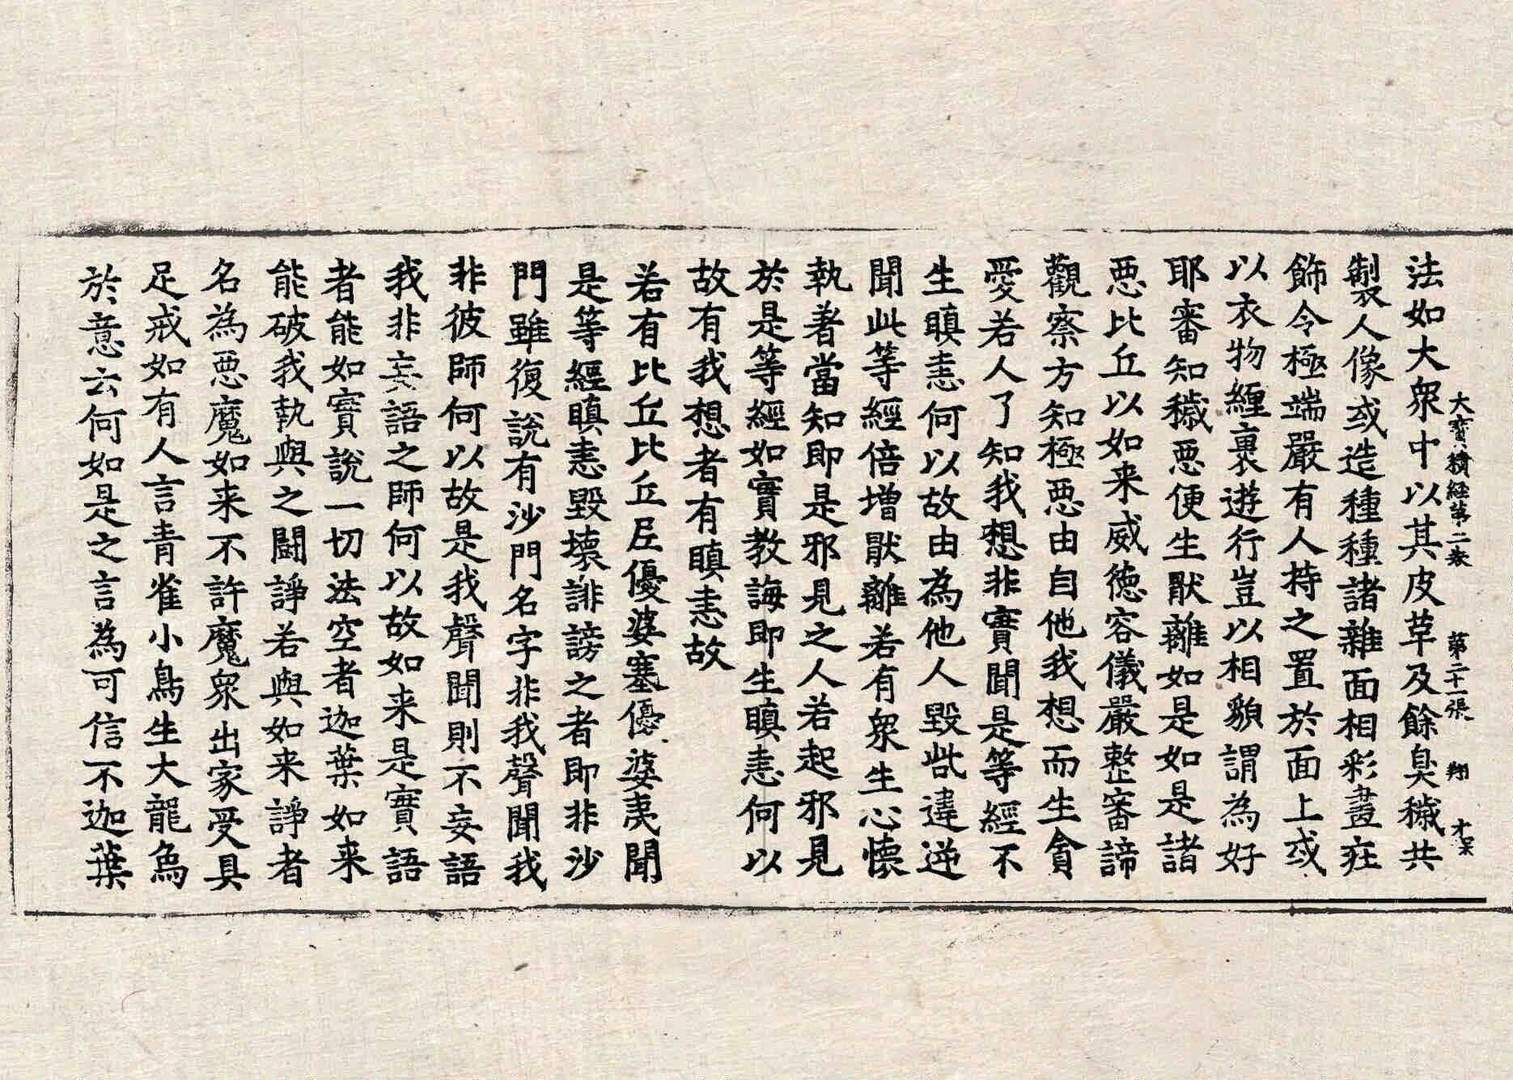 大寶積経第二卷 第二十一張 翔
法如大衆中以其皮草及餘臭穢共
製人像或造種種諸雜面相彩畫莊
飾令極端嚴有人持之置於面上或
以衣物纏裹遊行豈以相貌謂為好
耶審知穢惡便生猒離如是如是諸
惡比丘以如来威德容儀嚴整審諦
觀察方知極惡由自他我想而生貪
愛若人了知我想非實聞是等經不
生瞋恚何以故由為他人毀呰違逆
聞此等經倍增猒離若有衆生心懐
執著當知即是邪見之人若起邪見
於是等經如實教誨即生瞋恚何以
故有我想者有瞋恚故
若有比丘比丘尼優婆塞優婆夷聞
是等經瞋恚毀壞誹謗之者即非沙
門雖復說有沙門名字非我聲聞我
非彼師何以故是我聲聞則不妄語
我非妄語之師何以故如来是實語
者能如實說一切法空者迦葉如来
能破我執與之闘諍若與如来諍者
名為惡魔如来不許魔衆出家受具
足戒如有人言青雀小鳥生大龍象
於意云何如是之言為可信不迦葉